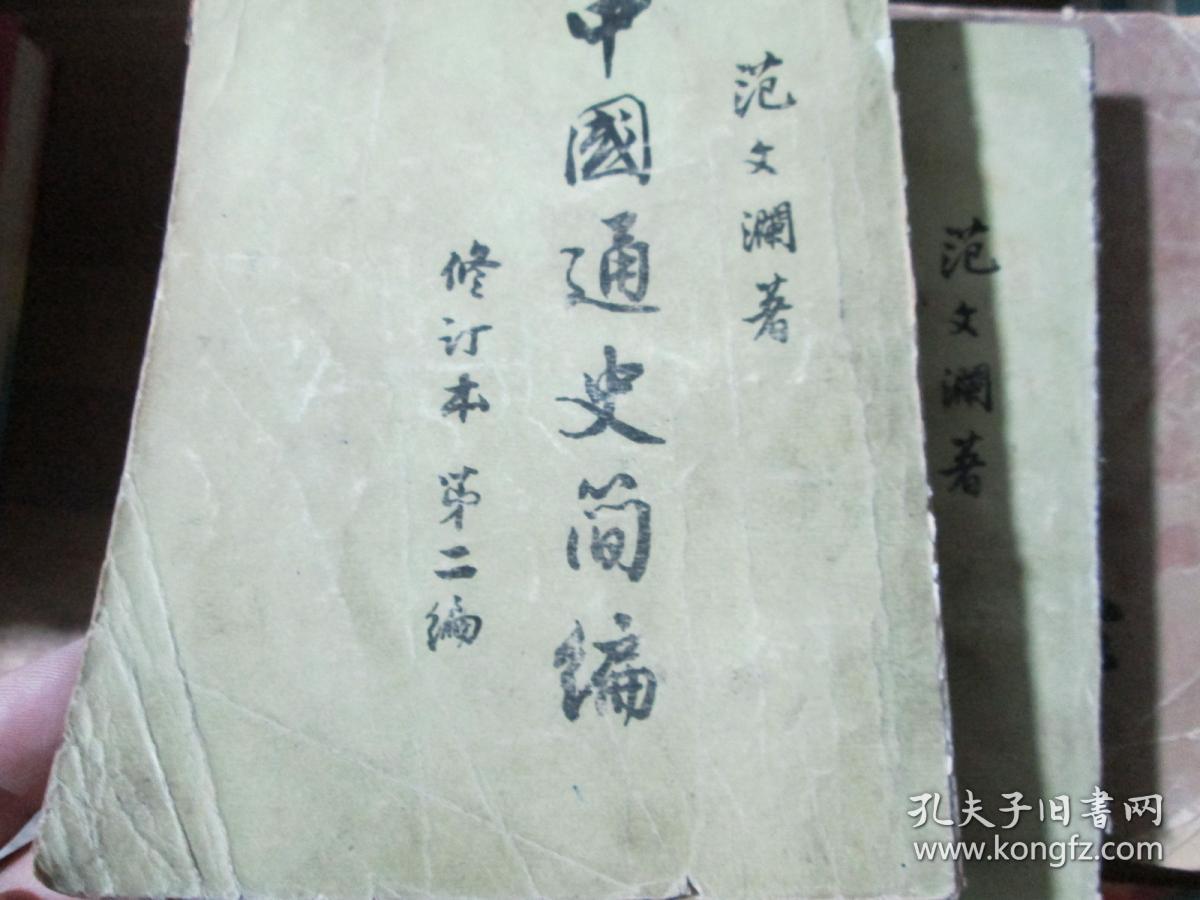 范文瀾著
中國通史简编
修订本 第二编
范文瀾著
孔夫子旧書网
www.kongfz.com